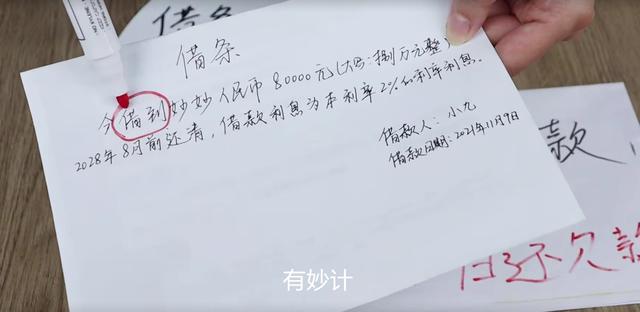 借条
今借到妙妙人民币80000元(大写:捌万元整)
2028年8月前还清,借款利息为本利率2%的利率利息.
借款人:小九
借款日期:2021年11月9日
款
归还欠款
有妙计